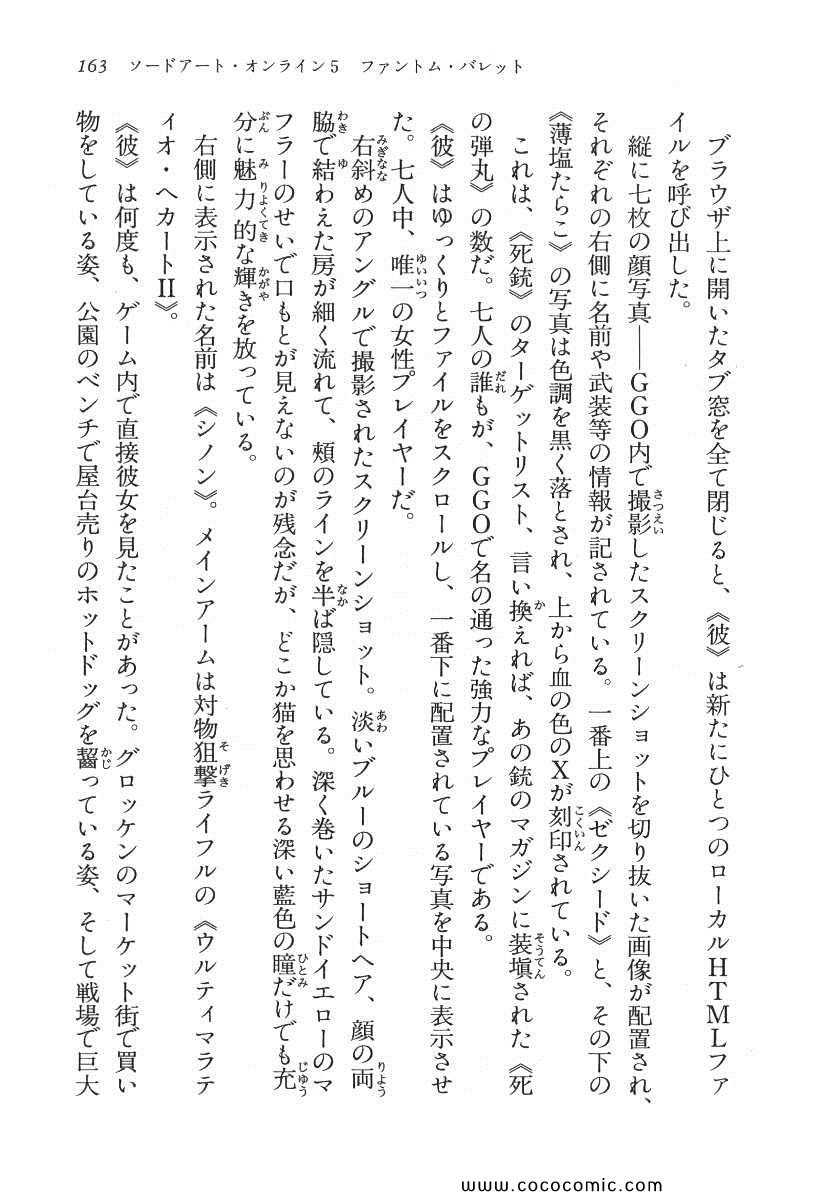 163　ソードアート・オンライン5　ファントム・バレット
ブラウザ上に開いたタブ窓を全て閉じると、《彼》は新たにひとつのローカルHTMLファ
イルを呼び出した。
縦に七枚の顔写真――GGO内で撮影したスクリーンショットを切り抜いた画像が配置され、
それぞれの右側に名前や武装等の情報が記されている。一番上の《ゼクシード》と、その下の
《薄塩たらこ》の写真は色調を黒く落とされ、上から血の色のXが刻印されている。
これは、《死銃》のターゲットリスト、言い換えれば、あの銃のマガジンに装塡された《死
の弾丸》の数だ。七人の誰もが、GGOで名の通った強力なプレイヤーである。
《彼》はゆっくりとファイルをスクロールし、一番下に配置されている写真を中央に表示させ
た。七人中、唯一の女性プレイヤーだ。
右斜めのアングルで撮影されたスクリーンショット。淡いブルーのショートヘア、顔の両
脇で結わえた房が細く流れて、頰のラインを半ば隠している。深く巻いたサンドイエローのマ
フラーのせいで口もとが見えないのが残念だが、どこか猫を思わせる深い藍色の瞳だけでも充
分に魅力的な輝きを放っている。
右側に表示された名前は《シノン》。メインアームは対物狙撃ライフルの《ウルティマラテ
ィオ・ヘカートⅡ》。
《彼》は何度も、ゲーム内で直接彼女を見たことがあった。グロッケンのマーケット街で買い
物をしている姿、公園のベンチで屋台売りのホットドッグを齧っている姿、そして戦場で巨大
www.cococomic.com